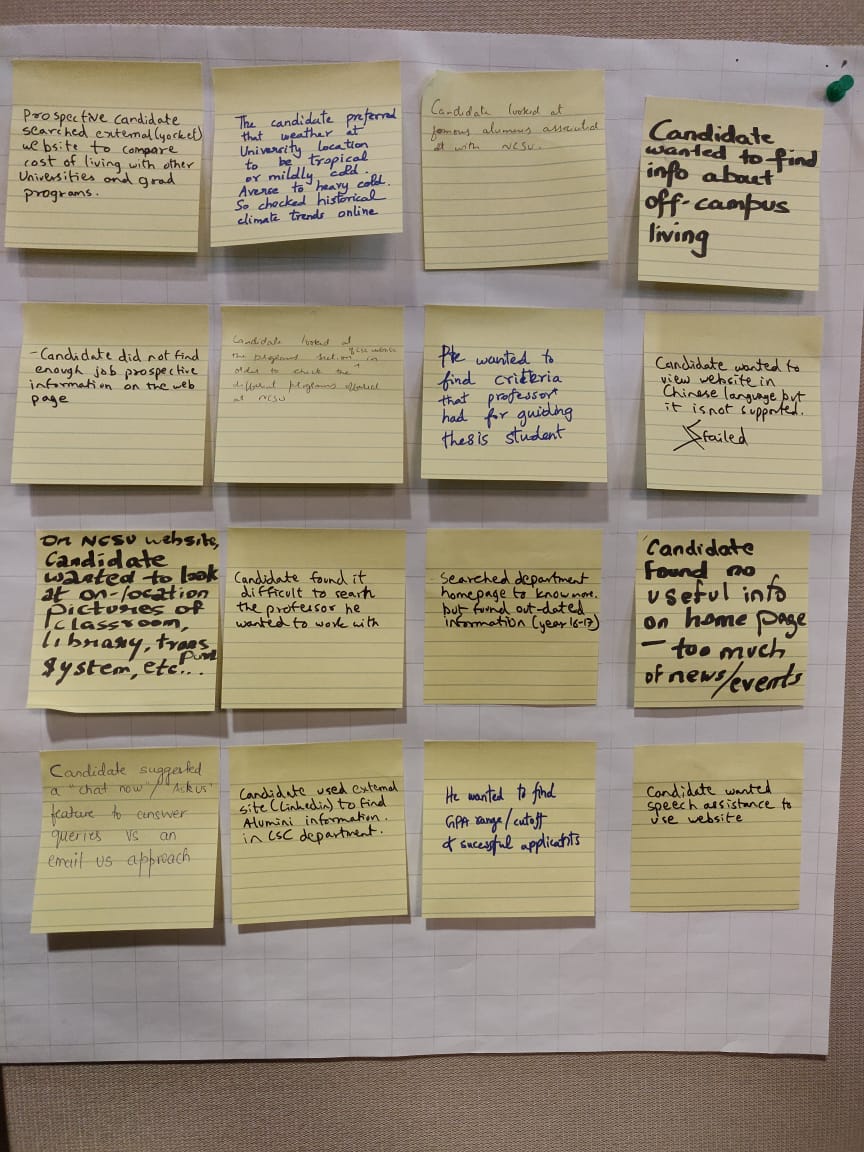 Prospective candidate
searched external (yocket)
website to compare
cost of living with other
Universities and grad
programs.
The candidate preferred
that weather at
University location
to be tropical
or mildly cold.
Averse to heavy cold.
So checked historical
climate trends online
Candidate looked at
famous alumnus associated
at with NCSU.
Candidate
wanted to find
info about
off-campus
living
- Candidate did not find
enough job prospective
information on the web
page
Candidate looked at
the programs section in
order to check the
different programs offered
at NCSU
He wanted to
find criteria
that professor
had for guiding
thesis student
Candidate wanted to
view website in
Chinese language but
it is not supported.
failed
On NCSU website,
Candidate
wanted to look
at on-location
pictures of
classroom,
library, trans
port
system, etc...
Candidate found it
difficult to search
the professor he
wanted to work with
Searched department
homepage to know more.
but found out-dated
information (year 16-17)
Candidate
found no
useful info
on home page
- too much
of news/events
Candidate suggested
a "chat now"/ 'Ask us'
feature to answer
queries vs an
email us approach
Candidate used external
site (Linkedin) to find
Alumini information.
in CSC department.
He wanted to find
GPA range/cutoff
of sucessful applicants
Candidate wanted
speech assistance to
use website